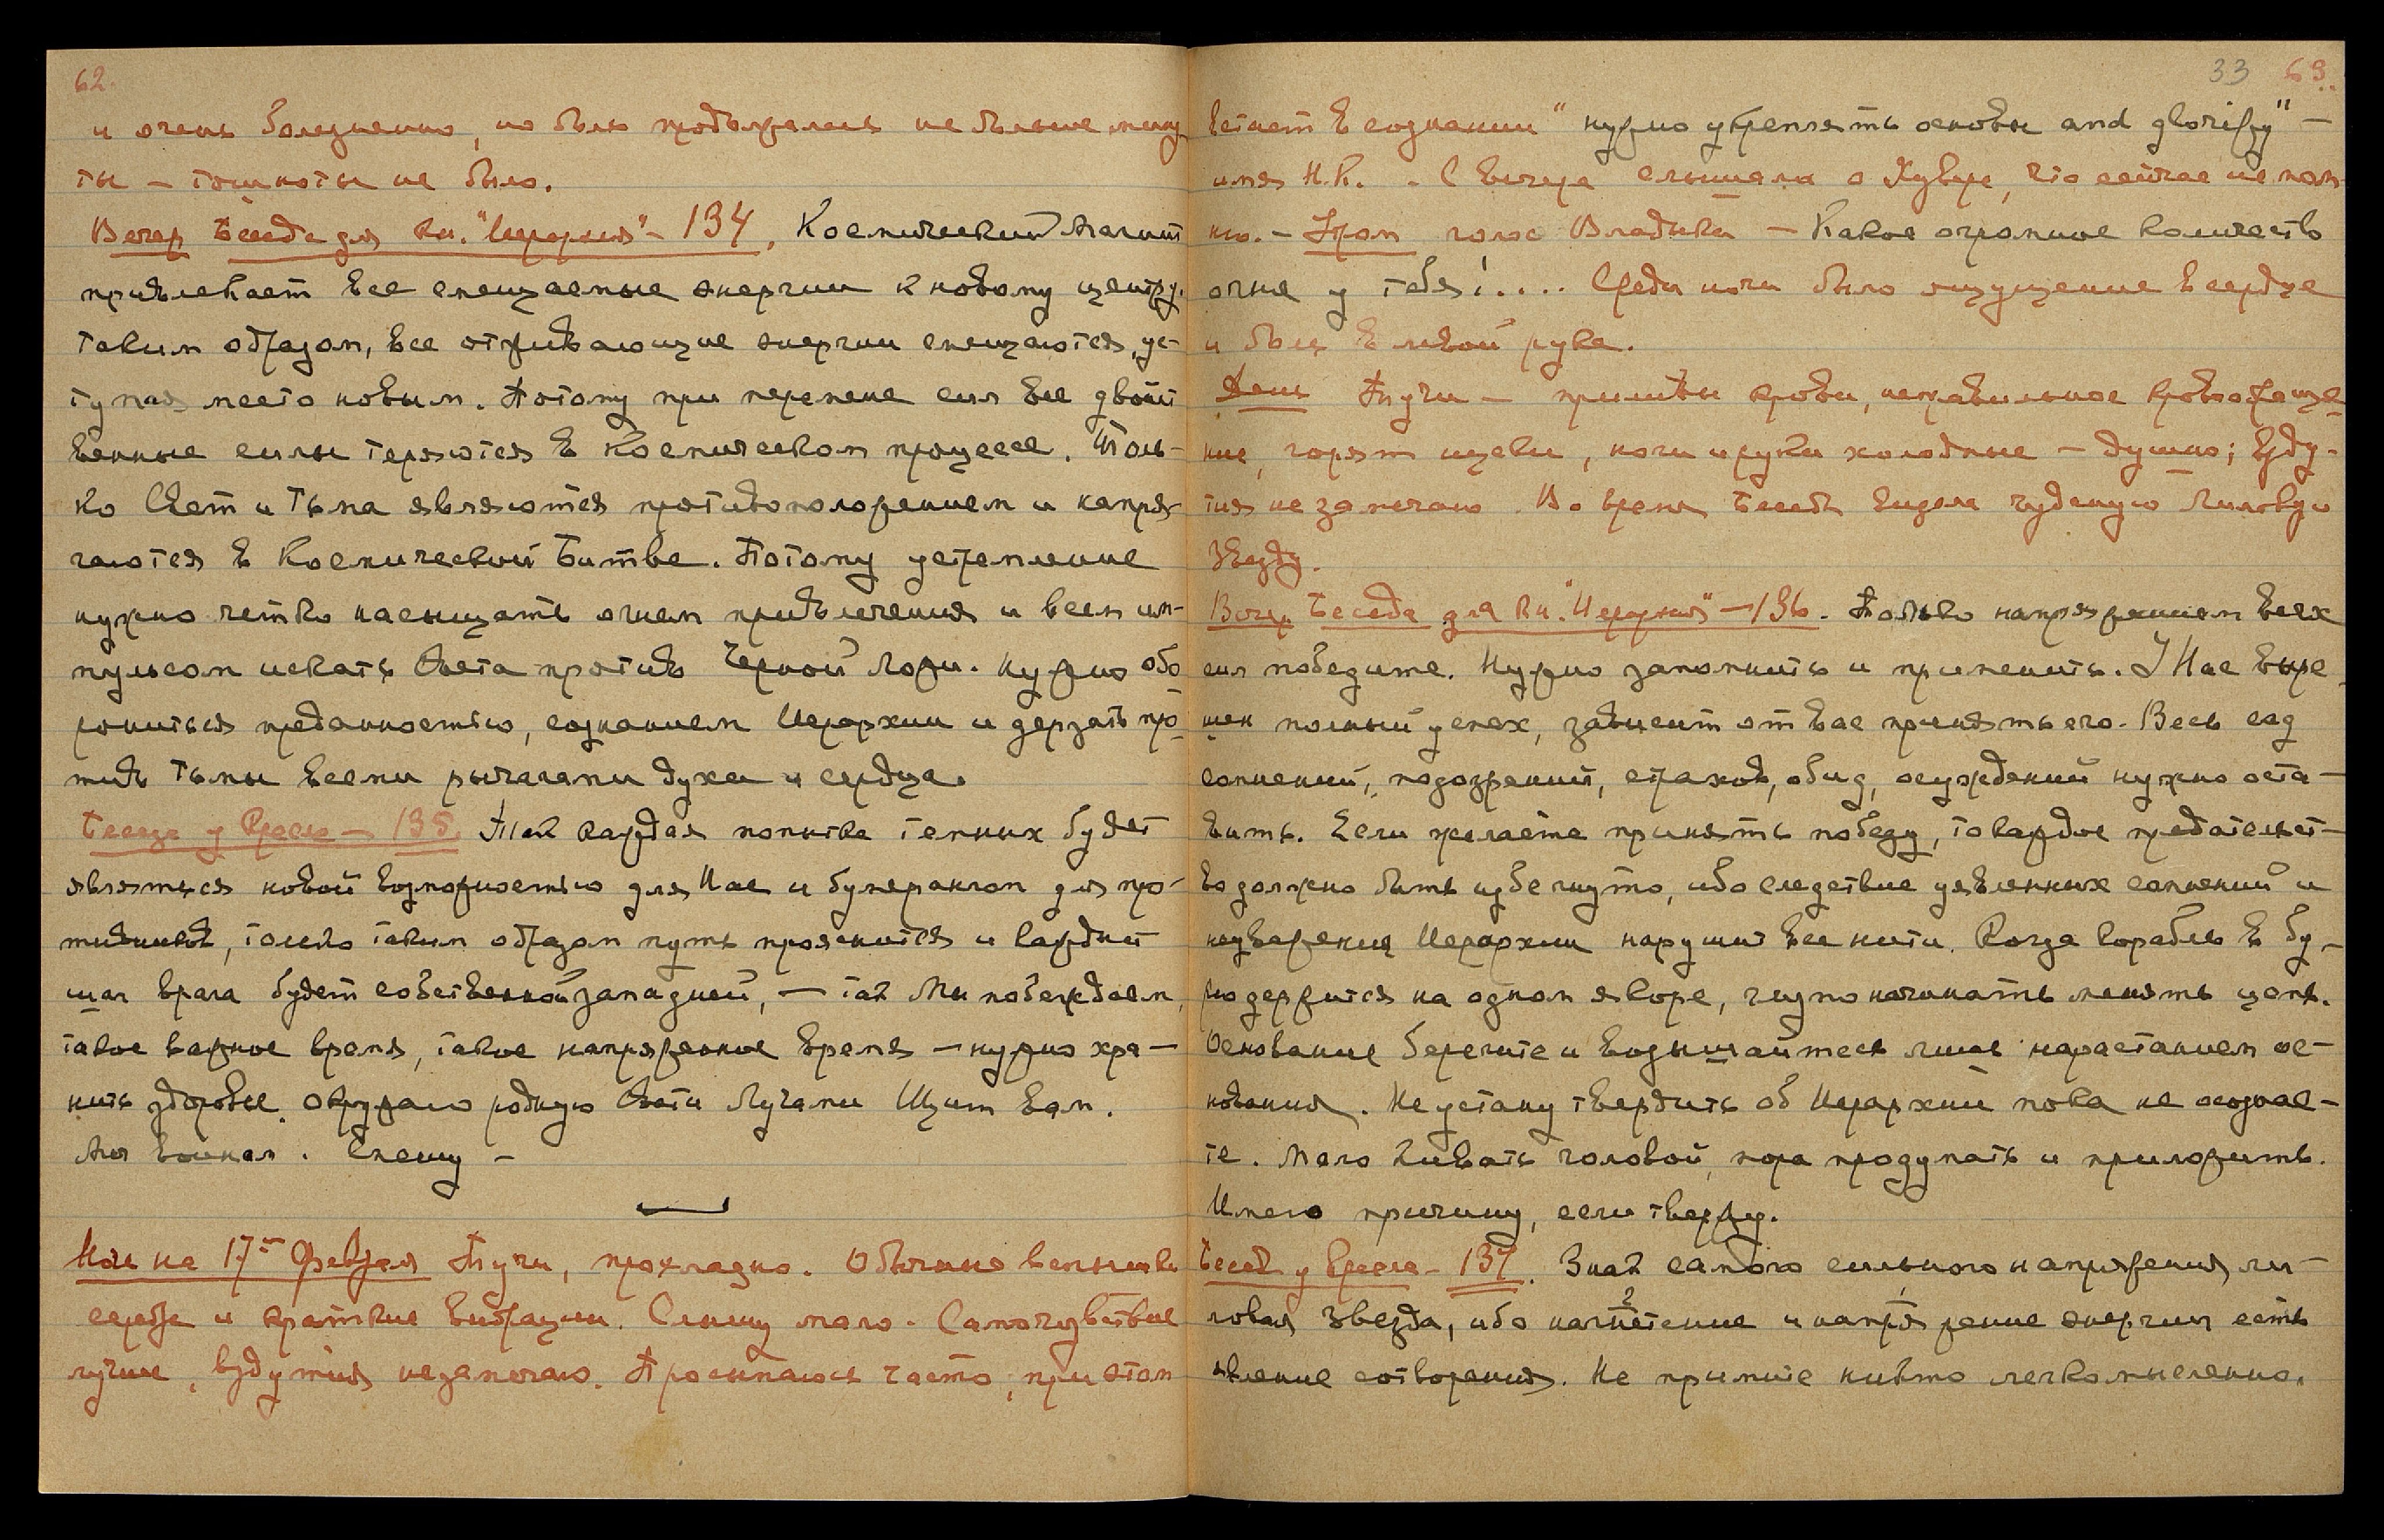 62.
и очень болезненно, но боль продолжалась не больше мину
ты — тошноты не было.
Вечер Беседа для кн. "Иерархия" — 134. Космический Магнит
привлекает все смещаемые энергии к новому центру.
Таким образом, все отживающие энергии смещаются, ус-
тупая место новым. Потому при перемене сил все двойст
венные силы теряются в Космическом процессе. Толь-
ко Свет и Тьма являются противоположением и напря-
гаются в Космической Битве. Потому устремление
нужно четко насыщать огнем привлечения и всем им-
пульсом искать Света против Черной Ложи. Нужно обо
рониться преданностью, сознанием Иерархии и дерзать про
тивь тьмы всеми рычагами духа и сердца.
Беседа у Кресла — 135. Так каждая попытка темных будет
являться новой возможностью для Нас и бумерангом для про-
тивников, только таким образом путь прояснится и каждый
шаг врага будет собственной западней, — так Мы побеждаем,
такое важное время, такое напряженное время — нужно хра-
нить здоровье. Окружаю родную Свати Лучами Щит вам.
Спешу —
Ночь на 17ое Февраля Тучи, прохладно. Обычные вспышки
сердце и краткие вибрации. Слышу мало. Самочувствие
лучше, вздутия не замечаю. Просыпаюсь часто, при этом
33 63.
встает в сознании "нужно укреплять основы and glorify" —
имя Н.К. . С вечера слышала о Хувере, что сейчас не пом-
ню. — Утром голос Владыки — Какое огромное количество
огня у тебя!.... Среди ночи было ощущение в сердце
и боль в левой руке.
День Тучи — приливы крови, неправильное кровообраще
ние, горят щеки, ноги и руки холодные — душно; взду-
тия не замечаю. Во время Беседы видела чудесную лиловую
Звезду.
Вечер Беседа для кн. "Иерархия" — 136. Только напряжением всех
сил победите. Нужно запомнить и применить. У Нас выре
шен полный успех, зависит от вас принять его. Весь сад
сомнений, подозрений, страхов, обид, осуждений нужно оста-
вить. Если желаете принять победу, то каждое предательст-
во должно быть избегнуто, ибо следствие уявленных сомнений и
неуважения Иерархии нарушит все нити. Когда корабль в бу-
рю держится на одном якоре, глупо начинать менять цепь.
Основание берегите и возвышайтесь лишь нарастанием ос-
нования. Не устану твердить об Иерархии пока не осознае-
те. Мало кивать головой, пора продумать и приложить.
Имею причину, если твержу.
Беседа у Кресла — 137. Знак самого сильного напряжения ли-
ловая Звезда, ибо нагнетение и напряжение энергии есть
явление сотворения. Не примите никто легкомысленно.